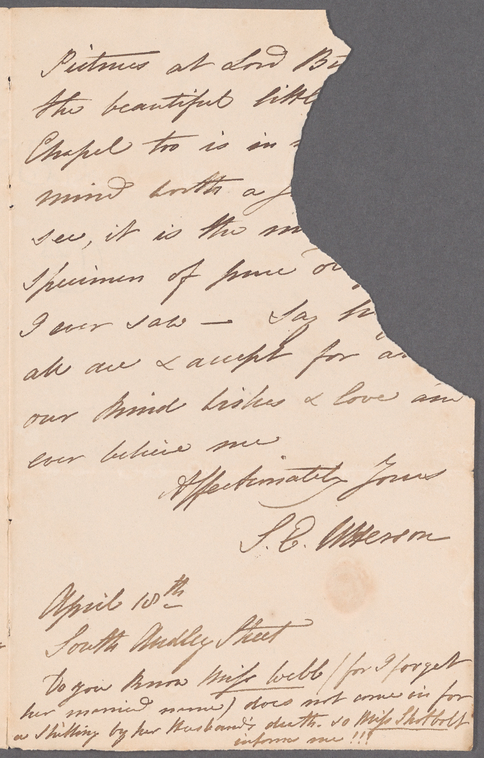 Pictures at Lord
the beautiful little
Chapel too is in
mind worth a
see, it is the
specimen of pure
I ever saw — Say
all are & accept for
our kind wishes & love and
ever believe me
Affectionately Yours
S. E. Utterson
April 18th
South Audley Street
Do you know Miss Webb (for I forget
her married name) does not come in for
a Shilling by her Husbands death. so Miss Shotbolt
informs me !!!